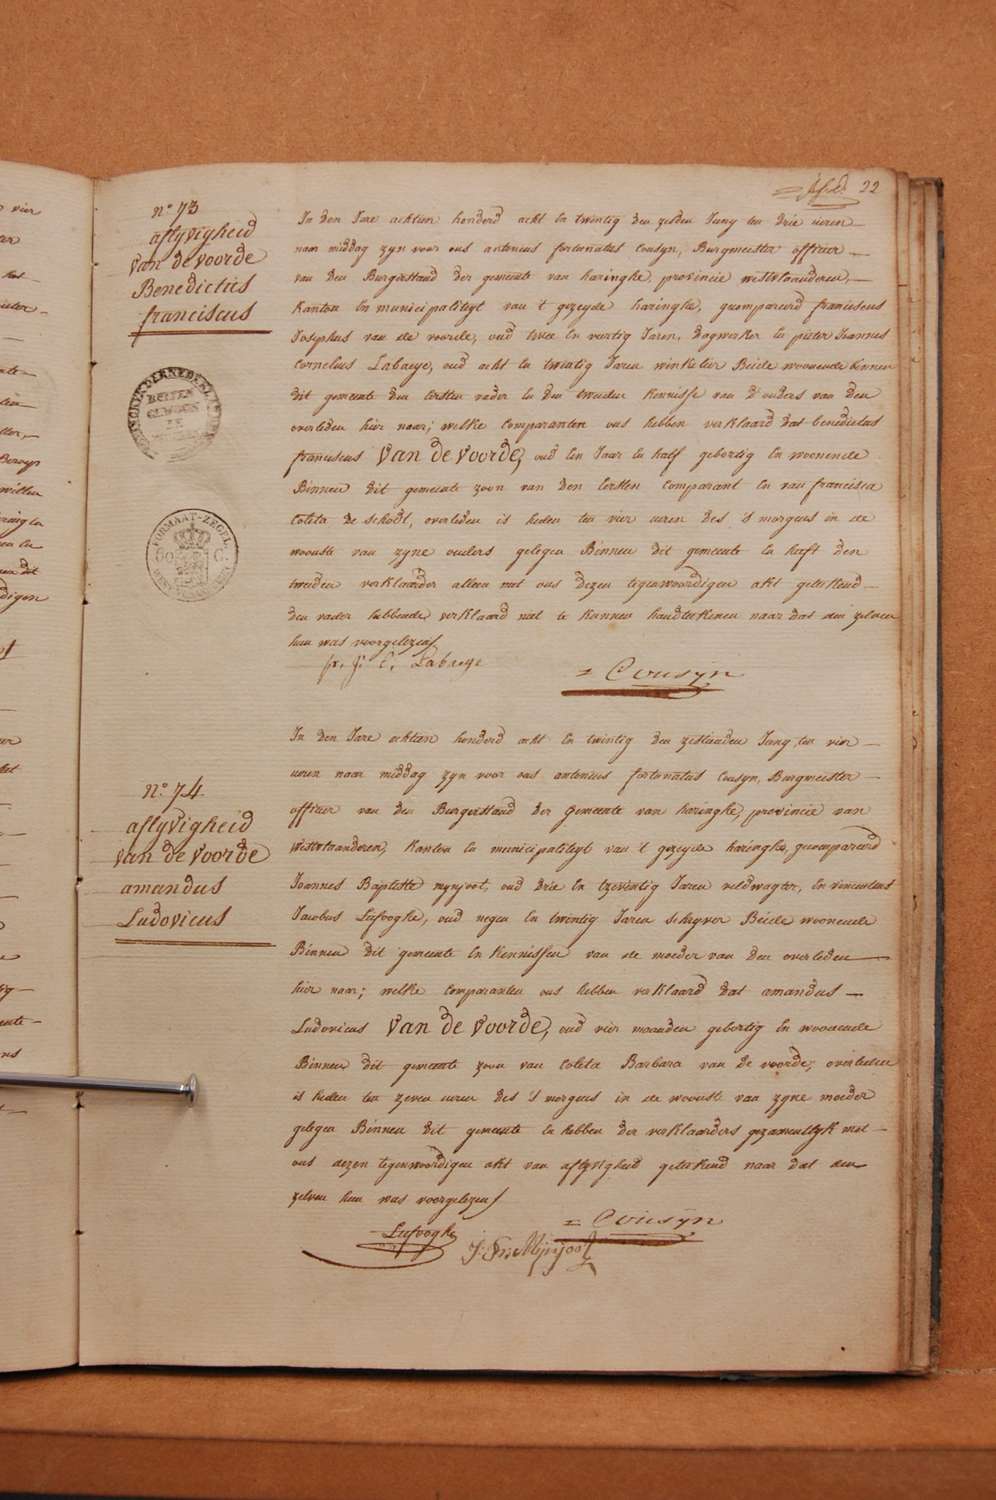 22
n° 73
aflyvigheid
van de voorde
Benedictus
franciscus
In den Jare achtien honderd acht En twintig den zesden Juny ten drie uren
naar middag zyn voor ons antonius fortunatus Cousyn, Burgmeister officier
van den Burgerstand der gemeente van haringhe, provincie westvlaanderen,
Kanton En municipaliteyt van 't gezeyde haringhe, gecompareerd franciscus
Josephus van de voorde, oud twee En veertig Jaren, dagwerker En pieter Joannes
Cornelius Labaeye, oud acht En twintig Jaren winkelier Beide woonende binnen
dit gemeente den Eersten vader En den tweeden Kennisse van d'ouders van den
overleden hier naar; welke Comparanten ons hebben verklaard dat benedictus
franciscus Van de Voorde, oud Een Jaar En half gebortig En woonende
Binnen dit gemeente zoon van den Eersten Comparant En van francisca
Coleta de schodt, overleden is heden ten vier uren des 's morgens in de
woonste van zyne ouders gelegen Binnen dit gemeente En heeft den
tweeden verklaarder alleen met ons dezen tegenwoordigen akt geteekend
den vader hebbende verklaard niet te konnen handteekenen naar dat den zelven
hun was voorgelezen
p. j. C. Labaeye
= Cousÿn
BUITEN
FORMAAT-ZEGEL
n° 74
aflyvigheid
van de voorde
amandus
Ludovicus
In den Jare achtien honderd acht En twintig den zestienden Juny, ten vier
uren naar middag zyn voor ons antonius fortunatus Cousyn, Burgmeister
officier van den Burgerstand der gemeente van haringhe, provincie van
Westvlaanderen, Kanton En municipaliteyt van 't gezeyde haringhe, gecompareerd
Joannes Baptiste mynjoot, oud drie En tzeventig Jaren veldwagter, En vincentius
Jacobus Lefooghe, oud negen En twintig Jaren schryver Beide woonende
Binnen dit gemeente En Kennissen van de moeder van den overleden
hier naar; welke Comparanten ons hebben verklaard dat amandus
Ludovicus Van de Voorde, oud vier maanden gebortig En woonende
Binnen dit gemeente zoon van Coleta Barbara van de voorde, overleden
is heden ten zeven uren des 's morgens in de woonste van zyne moeder
gelegen Binnen dit gemeente En hebben der verklaarders gezamentlyk met
ons dezen tegenwoordigen akt van aflyvigheid geteekend naar dat den
zelven hun was voorgelezen
Lefooghe
J: Bte Mijnjoot
= Cousÿn